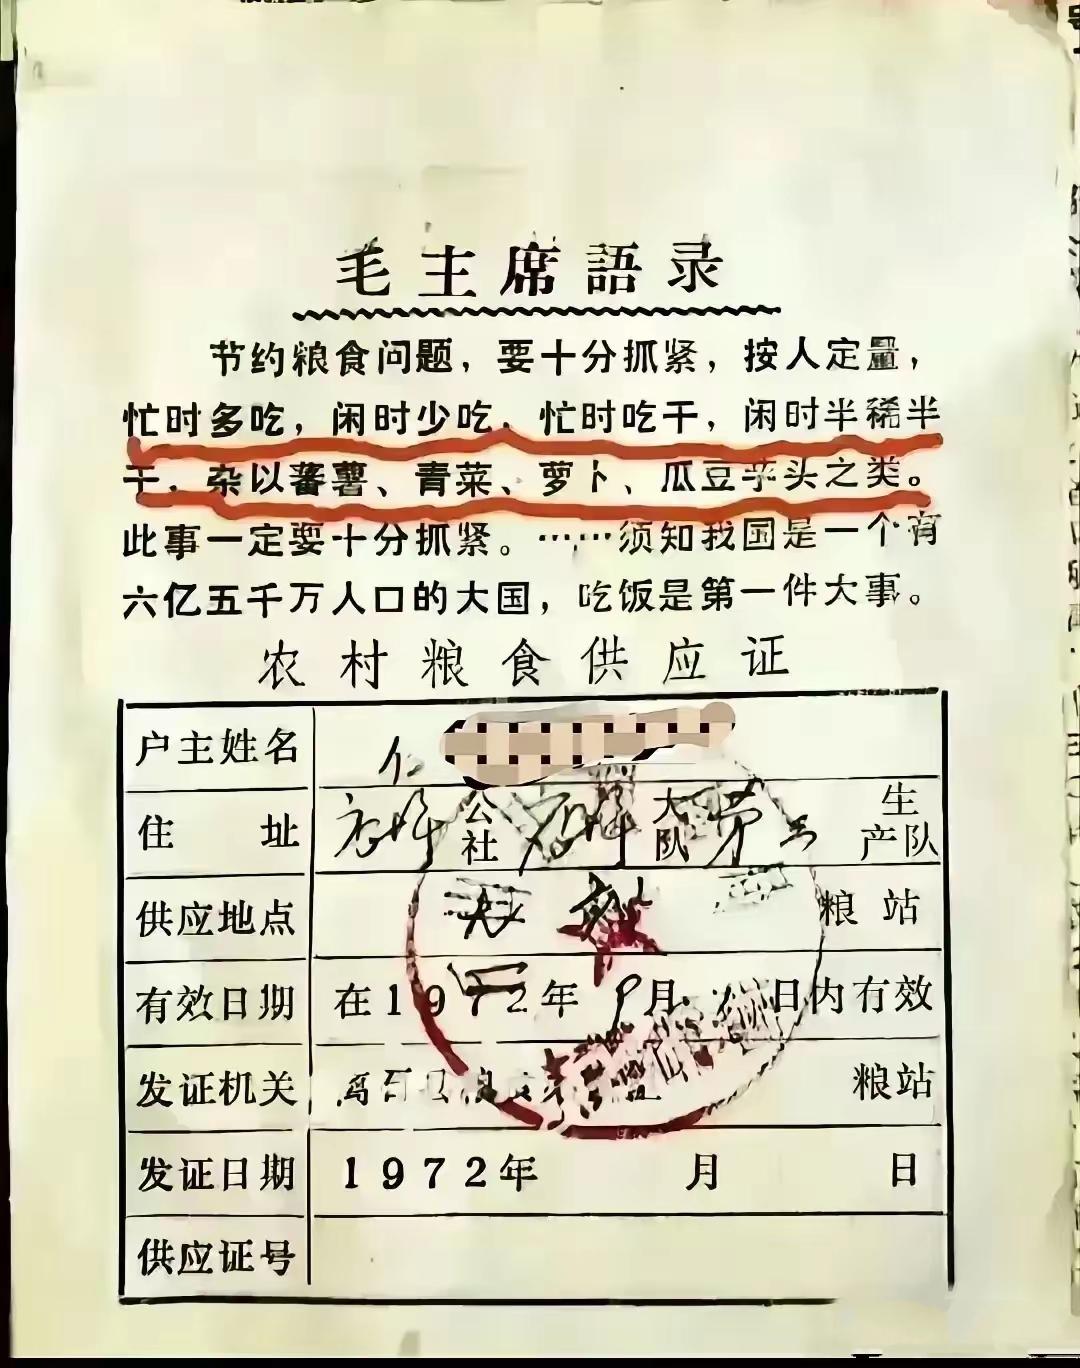 毛主席語录
节约粮食问题，要十分抓紧，按人定量，
忙时多吃，闲时少吃，忙时吃干，闲时半稀半
干，杂以蕃薯、青菜、萝卜、瓜豆芋头之类。
此事一定要十分抓紧。……须知我国是一个有
六亿五千万人口的大国，吃饭是第一件大事。
农村粮食供应证
户主姓名
住址 公社 大队 第 生产队
供应地点 粮站
有效日期 在1972年9月 日内有效
发证机关 粮站
发证日期 1972年 月 日
供应证号